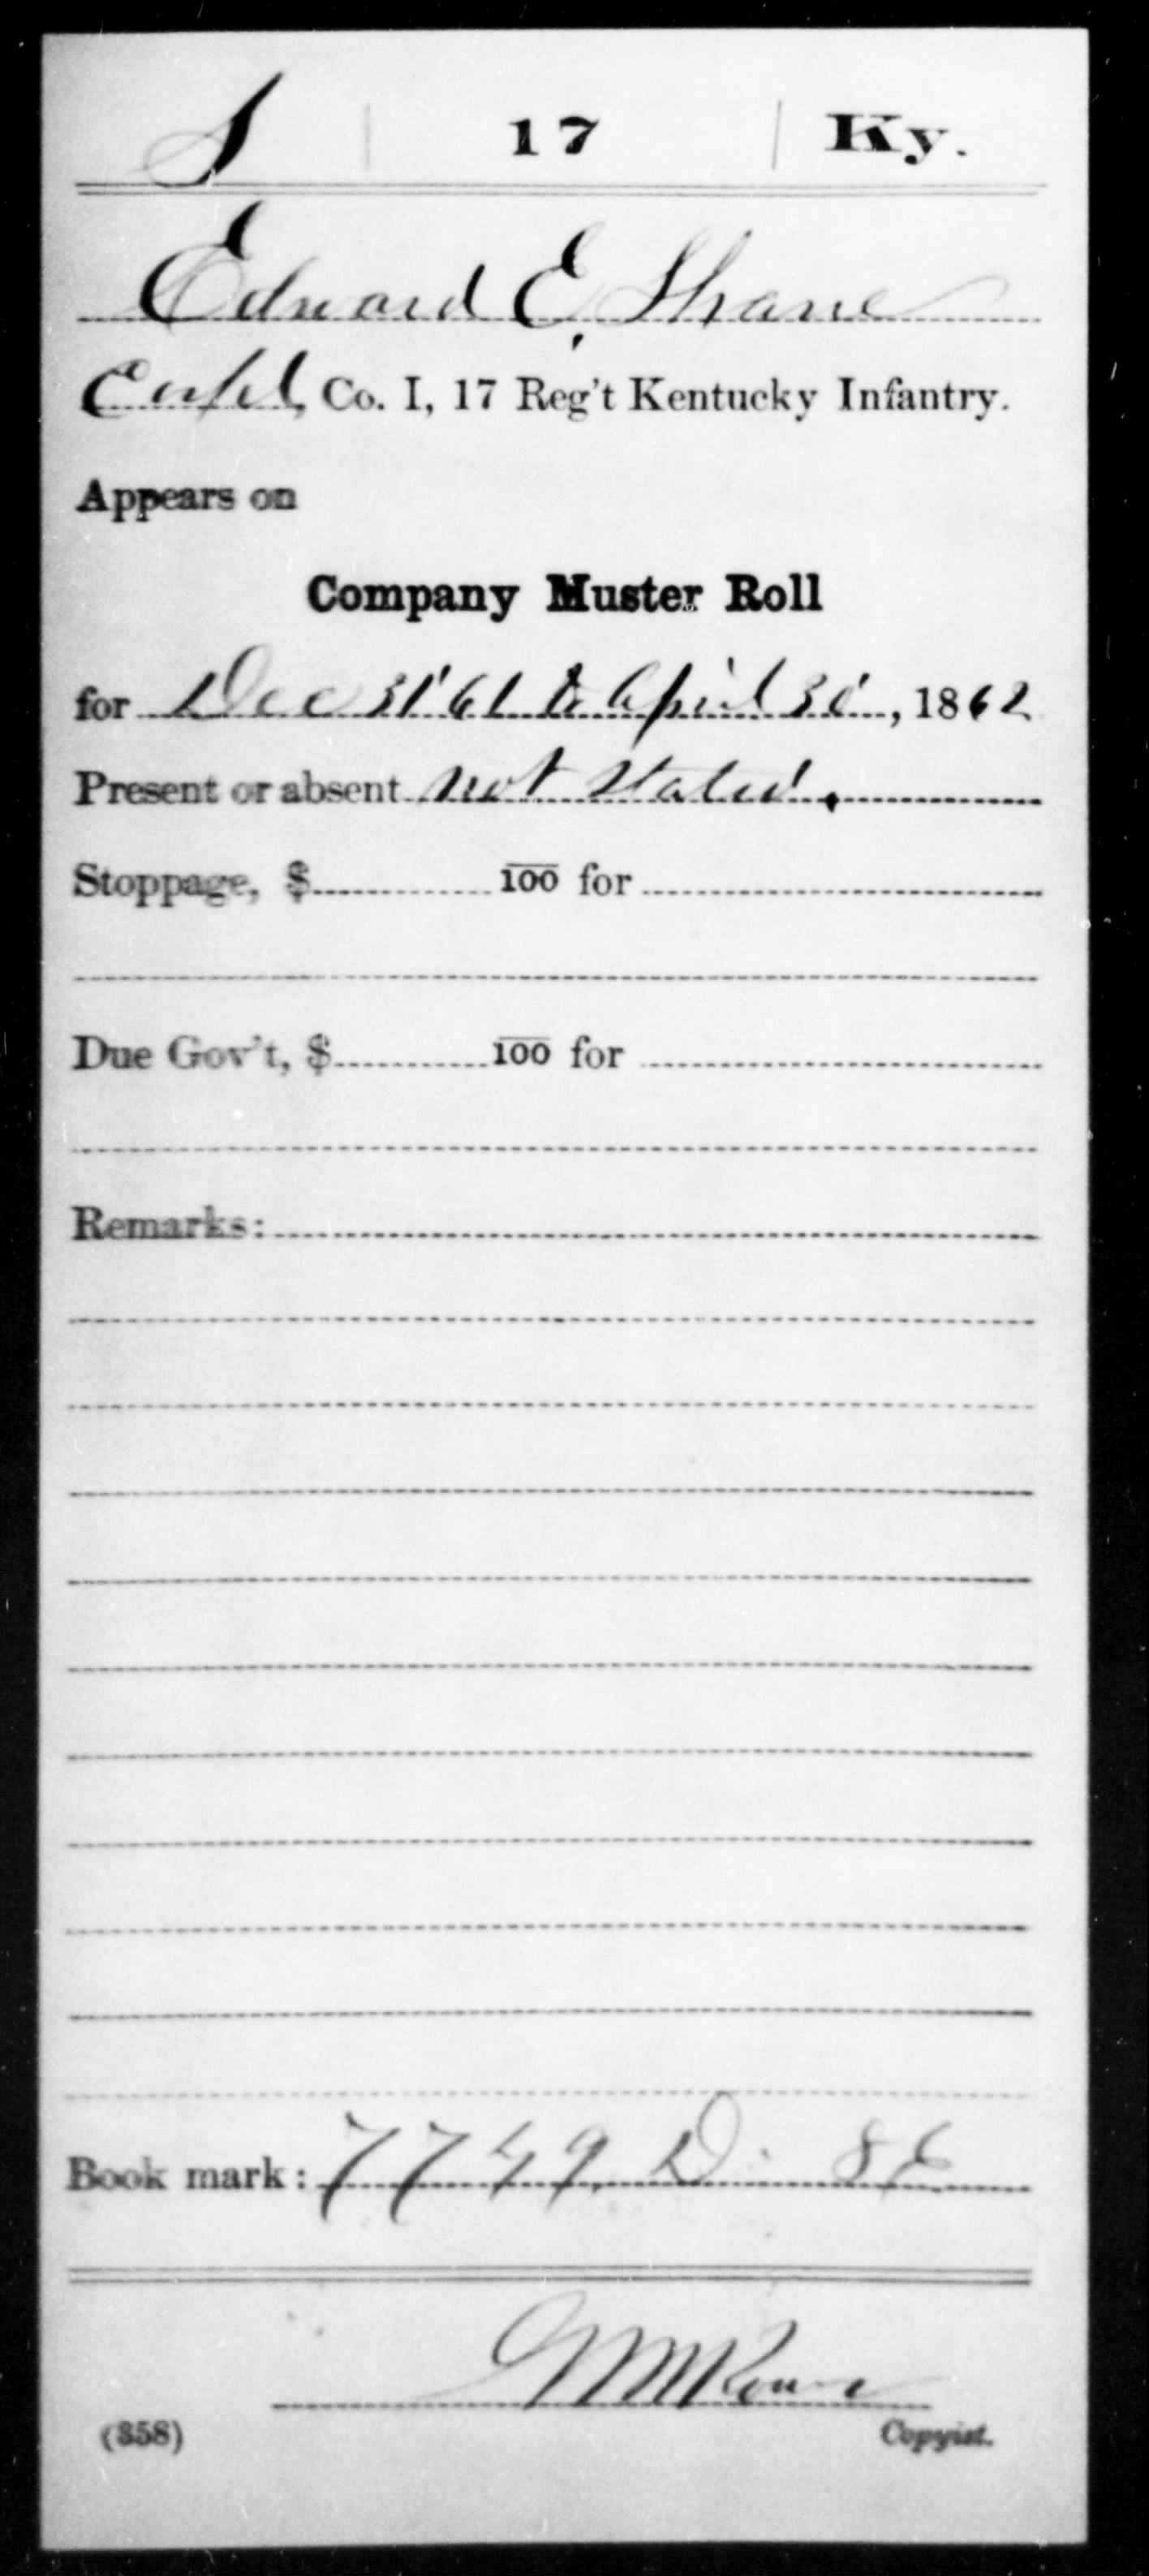 S | 17 | Ky.
Edward E. Shane
Co. I, 17 Reg't Kentucky Infantry.
Appears on
Company Muster Roll
for Dec 31 '61 to April 30, 1862
Present or absent not stated.
Stoppage, $ 100 for
Due Gov't, $ 100 for
Remarks:
Book mark: 7749 D. 
(358)
Copyist.